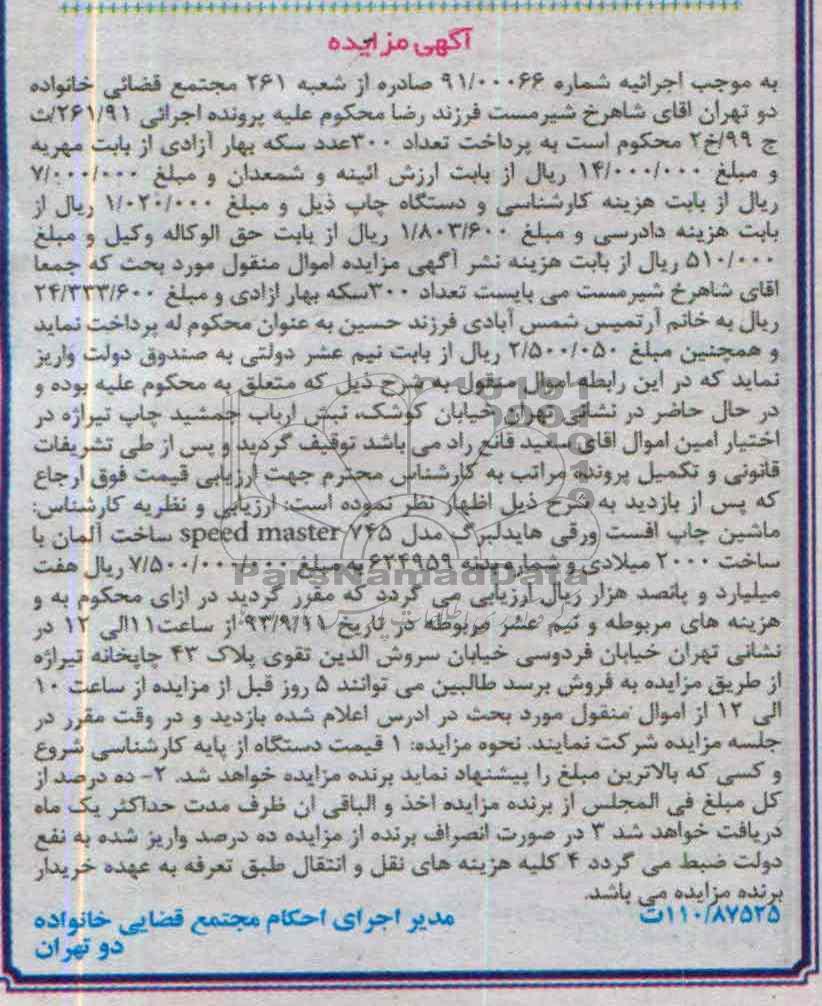 آگهی مزایده
به موجب اجرائیه شماره ۹۱/۰۰۰۶۶ صادره از شعبه ۲۶۱ مجتمع قضائی خانواده
دو تهران اقای شاهرخ شیرمست فرزند رضا محکوم علیه پرونده اجرائی ۲۶۱/۹۱/ث
ج ۹۹/خ۲ محکوم است به پرداخت تعداد ۳۰۰عدد سکه بهار آزادی از بابت مهریه
و مبلغ ۱۴/۰۰۰/۰۰۰ ریال از بابت ارزش ائینه و شمعدان و مبلغ ۷/۰۰۰/۰۰۰
ریال از بابت هزینه کارشناسی و دستگاه چاپ ذیل و مبلغ ۱/۰۲۰/۰۰۰ ریال از
بابت هزینه دادرسی و مبلغ ۱/۸۰۳/۶۰۰ ریال از بابت حق الوکاله وکیل و مبلغ
۵۱۰/۰۰۰ ریال از بابت هزینه نشر آگهی مزایده اموال منقول مورد بحث که جمعا
اقای شاهرخ شیرمست می بایست تعداد ۳۰۰سکه بهار ازادی و مبلغ ۲۴/۳۳۳/۶۰۰
ریال به خانم آرتمیس شمس آبادی فرزند حسین به عنوان محکوم له پرداخت نماید
و همچنین مبلغ ۲/۵۰۰/۰۵۰ ریال از بابت نیم عشر دولتی به صندوق دولت واریز
نماید که در این رابطه اموال منقول به شرح ذیل که متعلق به محکوم علیه بوده و
در حال حاضر در نشانی تهران خیابان کوشک، نبش ارباب جمشید چاپ تیراژه در
اختیار امین اموال اقای سعید قانع راد می باشد توقیف گردید و پس از طی تشریفات
قانونی و تکمیل پرونده مراتب به کارشناس محترم جهت ارزیابی قیمت فوق ارجاع
که پس از بازدید به شرح ذیل اظهار نظر نموده است: ارزیابی و نظریه کارشناس:
ماشین چاپ افست ورقی هایدلبرگ مدل ۷۴۵ speed master ساخت آلمان با
ساخت ۲۰۰۰ میلادی و شماره بدنه ۶۲۴۹۵۹ به مبلغ ۷/۵۰۰/۰۰۰/۰۰۰ ریال هفت
میلیارد و پانصد هزار ریال ارزیابی می گردد که مقرر گردید در ازای محکوم به و
هزینه های مربوطه و نیم عشر مربوطه در تاریخ ۹۳/۹/۱۱ از ساعت۱۱الی ۱۲ در
نشانی تهران خیابان فردوسی خیابان سروش الدین تقوی پلاک ۴۳ چاپخانه تیراژه
از طریق مزایده به فروش برسد طالبین می توانند ۵ روز قبل از مزایده از ساعت ۱۰
الی ۱۲ از اموال منقول مورد بحث در ادرس اعلام شده بازدید و در وقت مقرر در
جلسه مزایده شرکت نمایند. نحوه مزایده: ۱ قیمت دستگاه از پایه کارشناسی شروع
و کسی که بالاترین مبلغ را پیشنهاد نماید برنده مزایده خواهد شد. ۲- ده درصد از
کل مبلغ فی المجلس از برنده مزایده اخذ و الباقی ان ظرف مدت حداکثر یک ماه
دریافت خواهد شد ۳ در صورت انصراف برنده از مزایده ده درصد واریز شده به نفع
دولت ضبط می گردد ۴ کلیه هزینه های نقل و انتقال طبق تعرفه به عهده خریدار
برنده مزایده می باشد.
۱۱۰/۸۷۵۲۵ت
مدیر اجرای احکام مجتمع قضایی خانواده
دو تهران
ParsNamadData